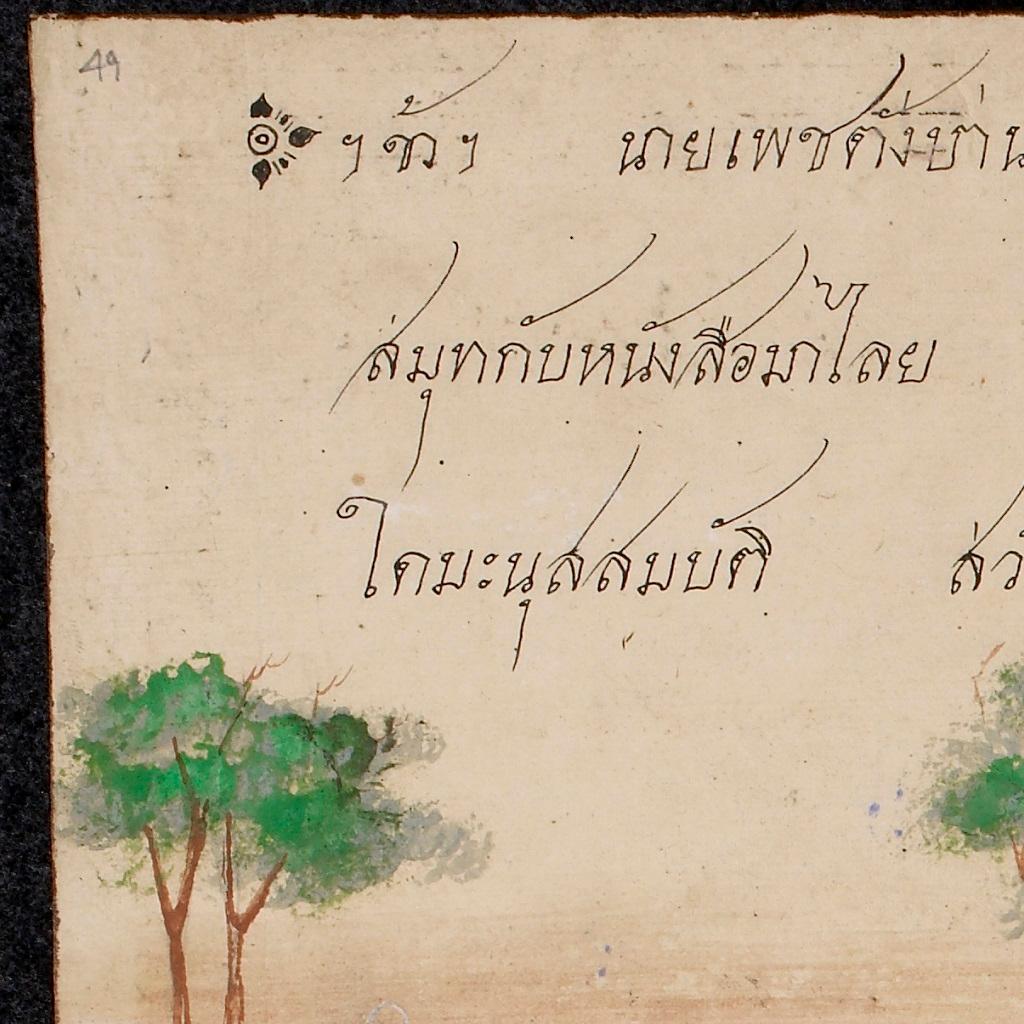 49
ฯ ข้า ฯ นายเพชตั้งบ้าน
ส่มุทกับหนังสือมาไลย
ใดมะนุสสมบัติ ส่วั